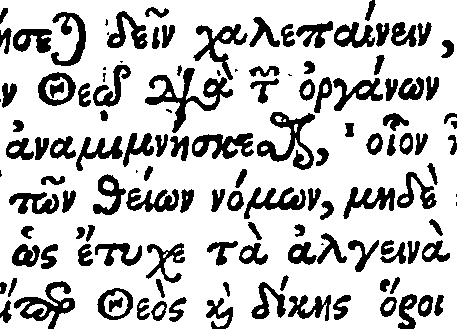 ήσεϑ δεῖν χαλεπαίνειν,
ν Θεῷ διὰ τ ὀργάνων
ἀναμιμνήσκεσθαι, οἷον
τῶν θείων νόμων, μηδὲ
ὡς ἔτυχε τὰ ἀλγεινὰ
Θεὸς ϗ δίκης ὅροι